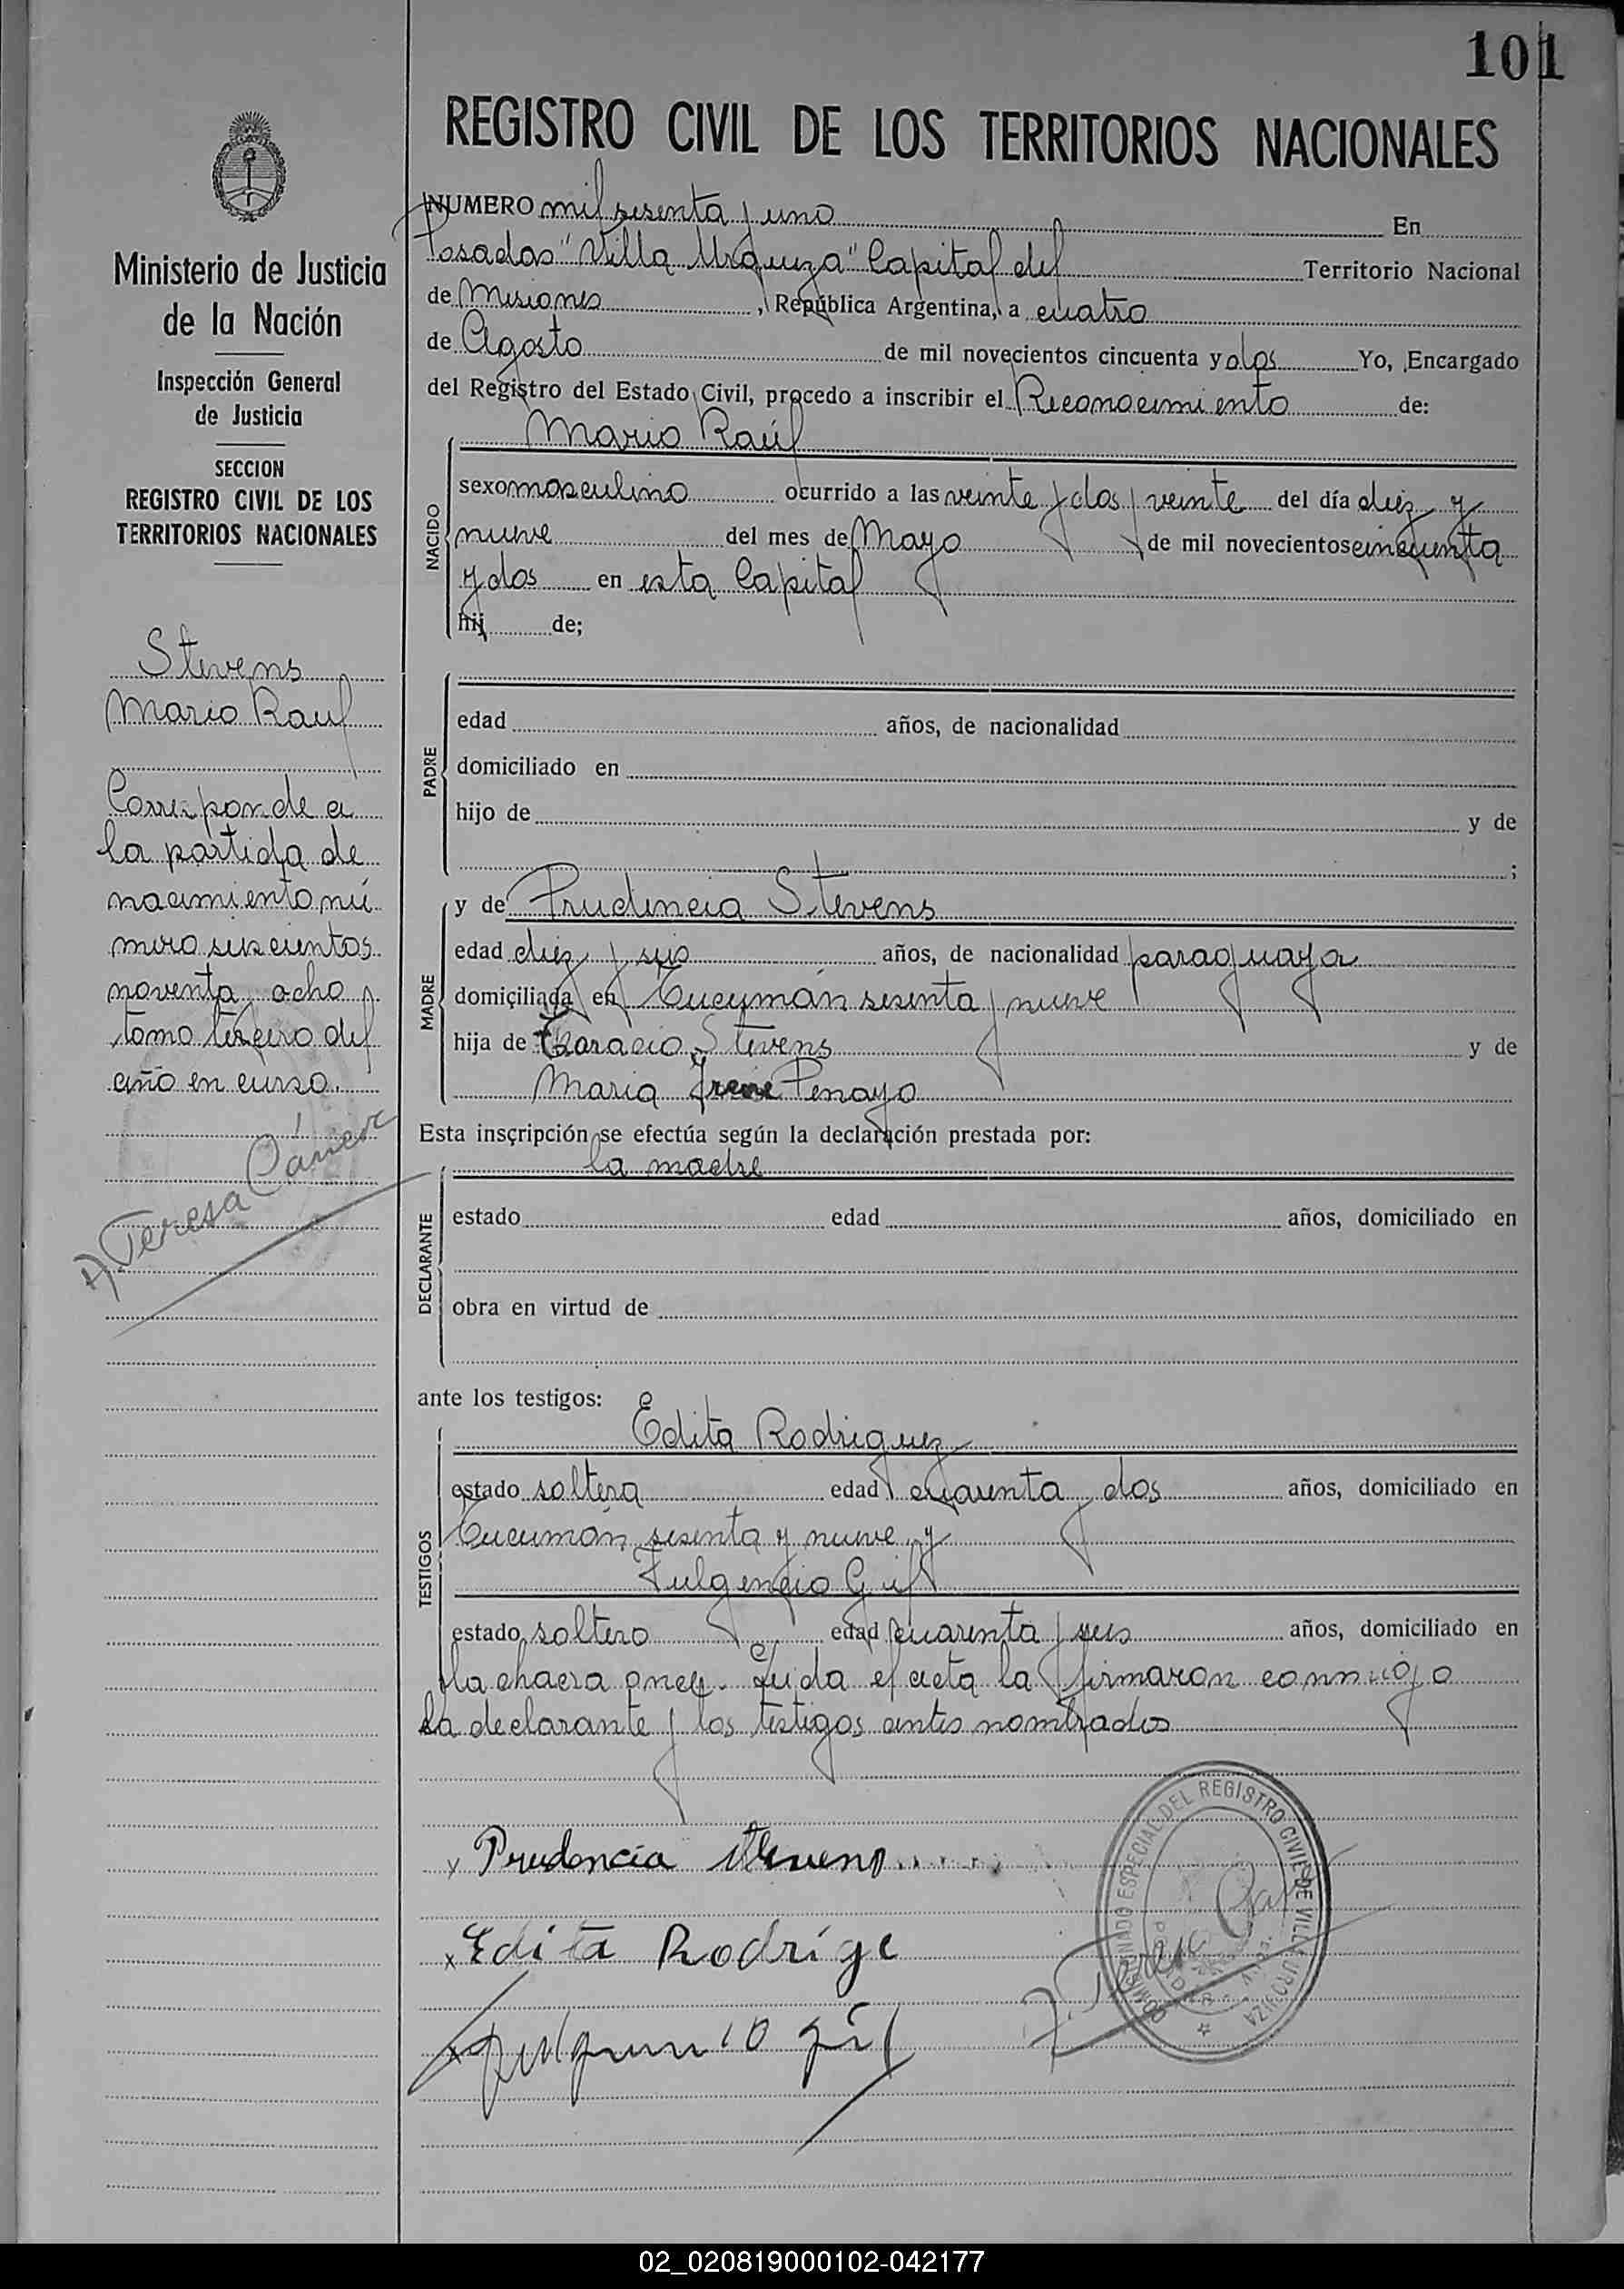 101
REGISTRO CIVIL DE LOS TERRITORIOS NACIONALES
Ministerio de Justicia
de la Nación
Inspección General
de Justicia
SECCION
REGISTRO CIVIL DE LOS
TERRITORIOS NACIONALES
Stevens
Mario Raul
Corresponde a
la partida de
nacimiento nú
mero seiscientos
noventa y ocho
tomo tercero del
año en curso.
Teresa
NUMERO mil sesenta y uno En
Posadas "Villa Urquiza" Capital del Territorio Nacional
de Misiones, República Argentina, a cuatro
de Agosto de mil novecientos cincuenta y dos Yo, Encargado
del Registro del Estado Civil, procedo a inscribir el Reconocimiento de:
NACIDO
Mario Raúl
sexo masculino ocurrido a las veinte y dos y veinte del día diez y
nueve del mes de Mayo de mil novecientos cincuenta
y dos en esta Capital
hij de;
PADRE
edad años, de nacionalidad
domiciliado en
hijo de y de
;
MADRE
y de Prudencia Stevens
edad diez y seis años, de nacionalidad paraguaya
domiciliada en Tucumán sesenta y nueve
hija de Horacio Stevens y de
Maria Irene Penayo
Esta inscripción se efectúa según la declaración prestada por:
la madre
DECLARANTE
estado edad años, domiciliado en
obra en virtud de
ante los testigos:
TESTIGOS
Edita Rodriguez
estado soltera edad cuarenta y dos años, domiciliado en
Tucumán sesenta y nueve y
Fulgencio Gil
estado soltero edad cuarenta y seis años, domiciliado en
la chacra once. Leida el acta la firmaron conmigo
la declarante y los testigos antes nombrados
x Prudencia Stevens
x Edita Rodríge
Fulgencio gil
ESPECIAL DEL REGISTRO CIVIL DE VILLA URQUIZA
02_020819000102-042177